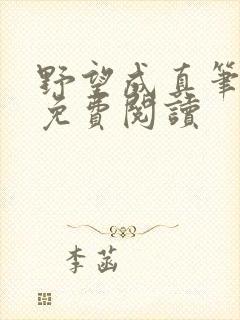 野望成真筆
免費閱讀
李菡